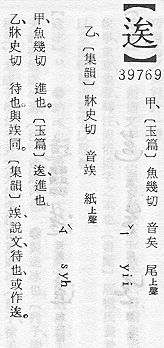 【逘】
39769
甲〔玉篇〕魚幾切 音矣 尾上聲 ㄧˇ yii
乙〔集韻〕牀史切 音竢 紙上聲 ㄙˋ syh
甲、魚幾切 進也。〔玉篇〕逘、進也。
乙、牀史切 待也。與竢同。〔集韻〕竢、說文、待也、或作逘。